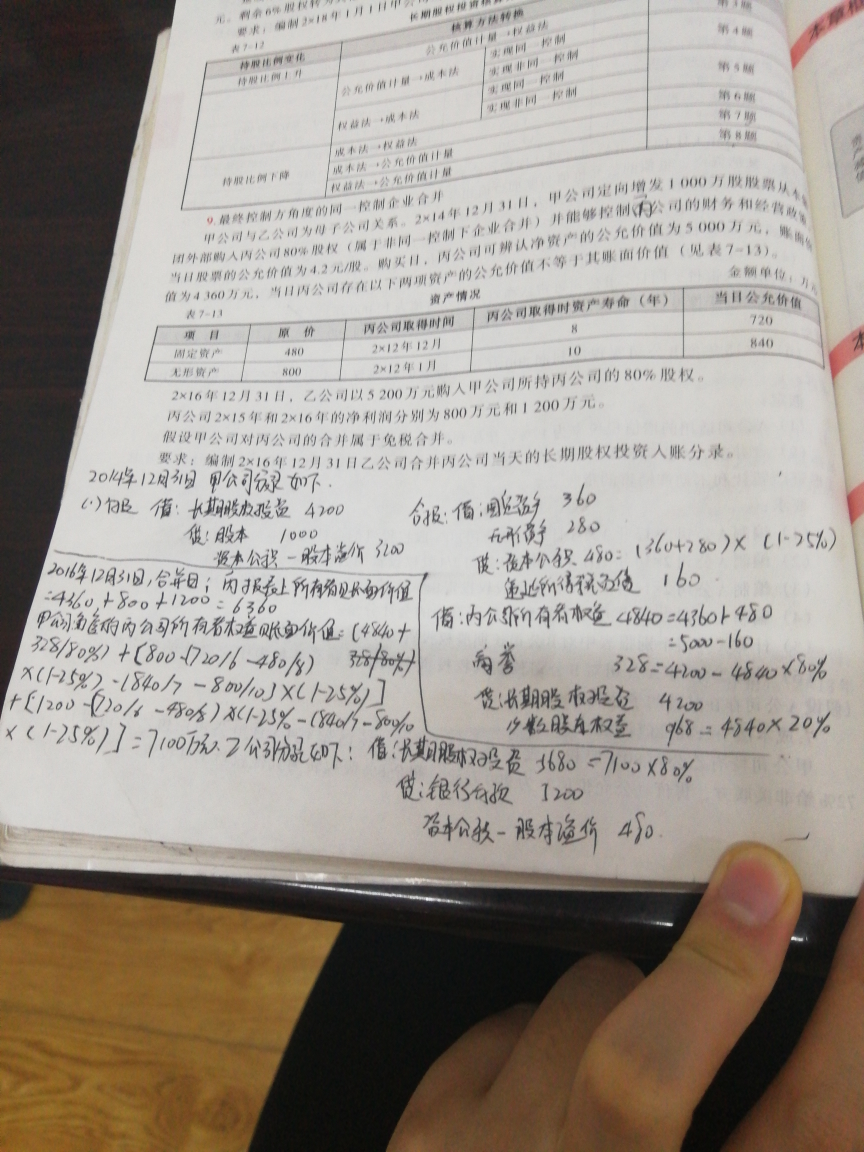 元。剩余6%股权转为
要求：编制2×18年1月1日甲公司
长期股权投资核算
表7-12
持股比例变化
核算方法转换
第4题
持股比例上升
公允价值计量→权益法
公允价值计量→成本法
实现同一控制
实现非同一控制
第5题
权益法→成本法
实现同一控制
实现非同一控制
第6题
第7题
持股比例下降
成本法→权益法
第8题
成本法→公允价值计量
权益法→公允价值计量
9.最终控制方角度的同一控制企业合并
甲公司与乙公司为母子公司关系。2×14年12月31日，甲公司定向增发1 000万股股票从本
团外部购入丙公司80%股权（属于非同一控制下企业合并）并能够控制丙公司的财务和经营政策
当日股票的公允价值为4.2元/股。购买日，丙公司可辨认净资产的公允价值为5 000万元，账面
值为4 360万元，当日丙公司存在以下两项资产的公允价值不等于其账面价值（见表7-13）。
表7-13
资产情况
金额单位：万元
项 目 原 价 丙公司取得时间 丙公司取得时资产寿命（年） 当日公允价值
固定资产 480 2×12年12月 8 720
无形资产 800 2×12年1月 10 840
2×16年12月31日，乙公司以5 200万元购入甲公司所持丙公司的80%股权。
丙公司2×15年和2×16年的净利润分别为800万元和1 200万元。
假设甲公司对丙公司的合并属于免税合并。
要求：编制2×16年12月31日乙公司合并丙公司当天的长期股权投资入账分录。
2014年12月31日 甲公司分录如下．
借：长期股权投资 4200
贷：股本 1000
资本公积－股本溢价 3200
合报：借：固定资产 360
无形资产 280
贷：资本公积 480=(360+280)×(1-25%)
递延所得税负债 160
借：丙公司所有者权益 4840=4360+480
=5000-160
商誉 328=4200-4840×80%
贷：长期股权投资 4200
少数股东权益 968=4840×20%
2016年12月31日，合并日；丙报表上所有者权益账面价值
=4360+800+1200=6360
甲公司角度的丙公司所有者权益账面价值=(4840+
328/80%)+[800-(720/6-480/8)
×(1-25%)-(840/7-800/10)×(1-25%)]
+[1200-(720/6-480/8)×(1-25%-(840/7-800/10
×(1-25%)]=7100万元．乙公司分录如下：借：长期股权投资 5680=7100×80%
贷：银行存款 5200
资本公积－股本溢价 480．